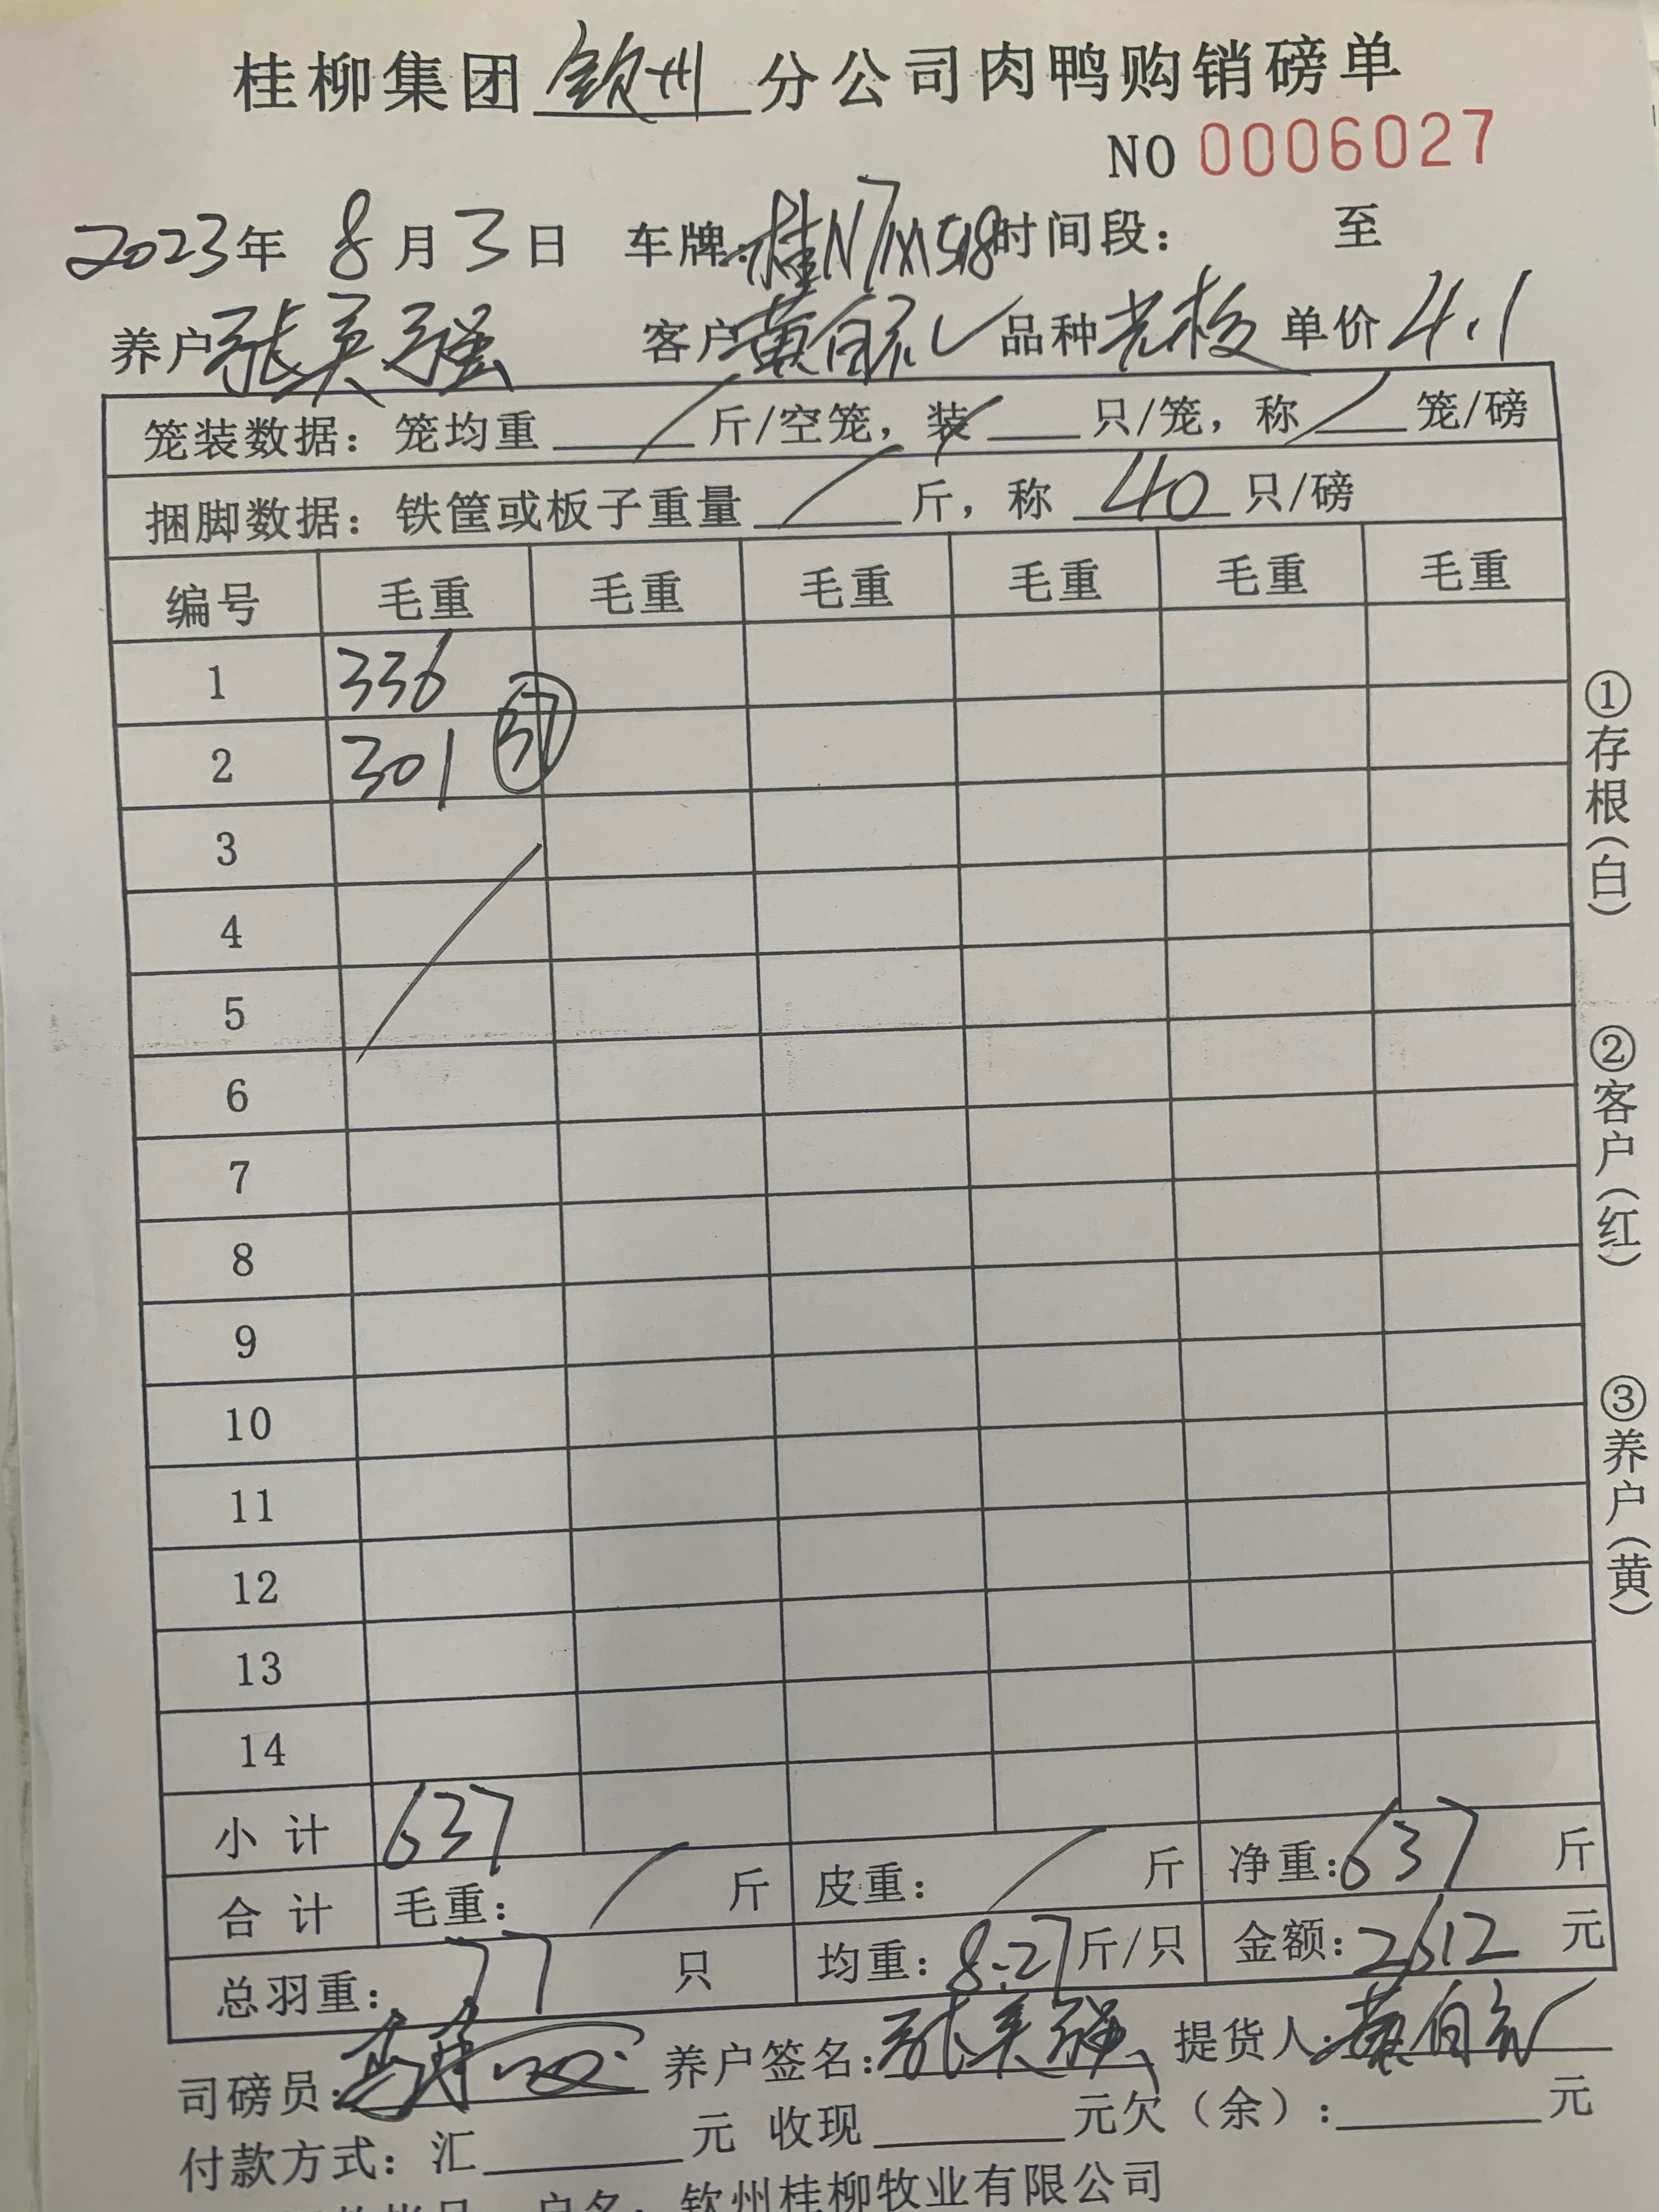 桂柳集团 钦州 分公司肉鸭购销磅单
NO 0006027
2023年 8月3日 车牌:桂N7M518 时间段: 至
养户 张英强 客户 黄自 品种 单价 4.1
笼装数据: 笼均重 / 斤/空笼, 装 / 只/笼, 称 / 笼/磅
捆脚数据: 铁筐或板子重量 / 斤, 称 40 只/磅
编号 毛重 毛重 毛重 毛重 毛重 毛重
1 336
2 301 37
3
4
5
6
7
8
9
10
11
12
13
14
小计 637
合计 毛重: / 斤 皮重: / 斤 净重: 637 斤
总羽重: 77 只 均重: 8.27 斤/只 金额: 2612 元
司磅员: 养户签名: 张英强 提货人: 黄自
付款方式: 汇 元 收现 元欠(余): 元
户名: 钦州桂柳牧业有限公司
①存根(白)
②客户(红)
③养户(黄)